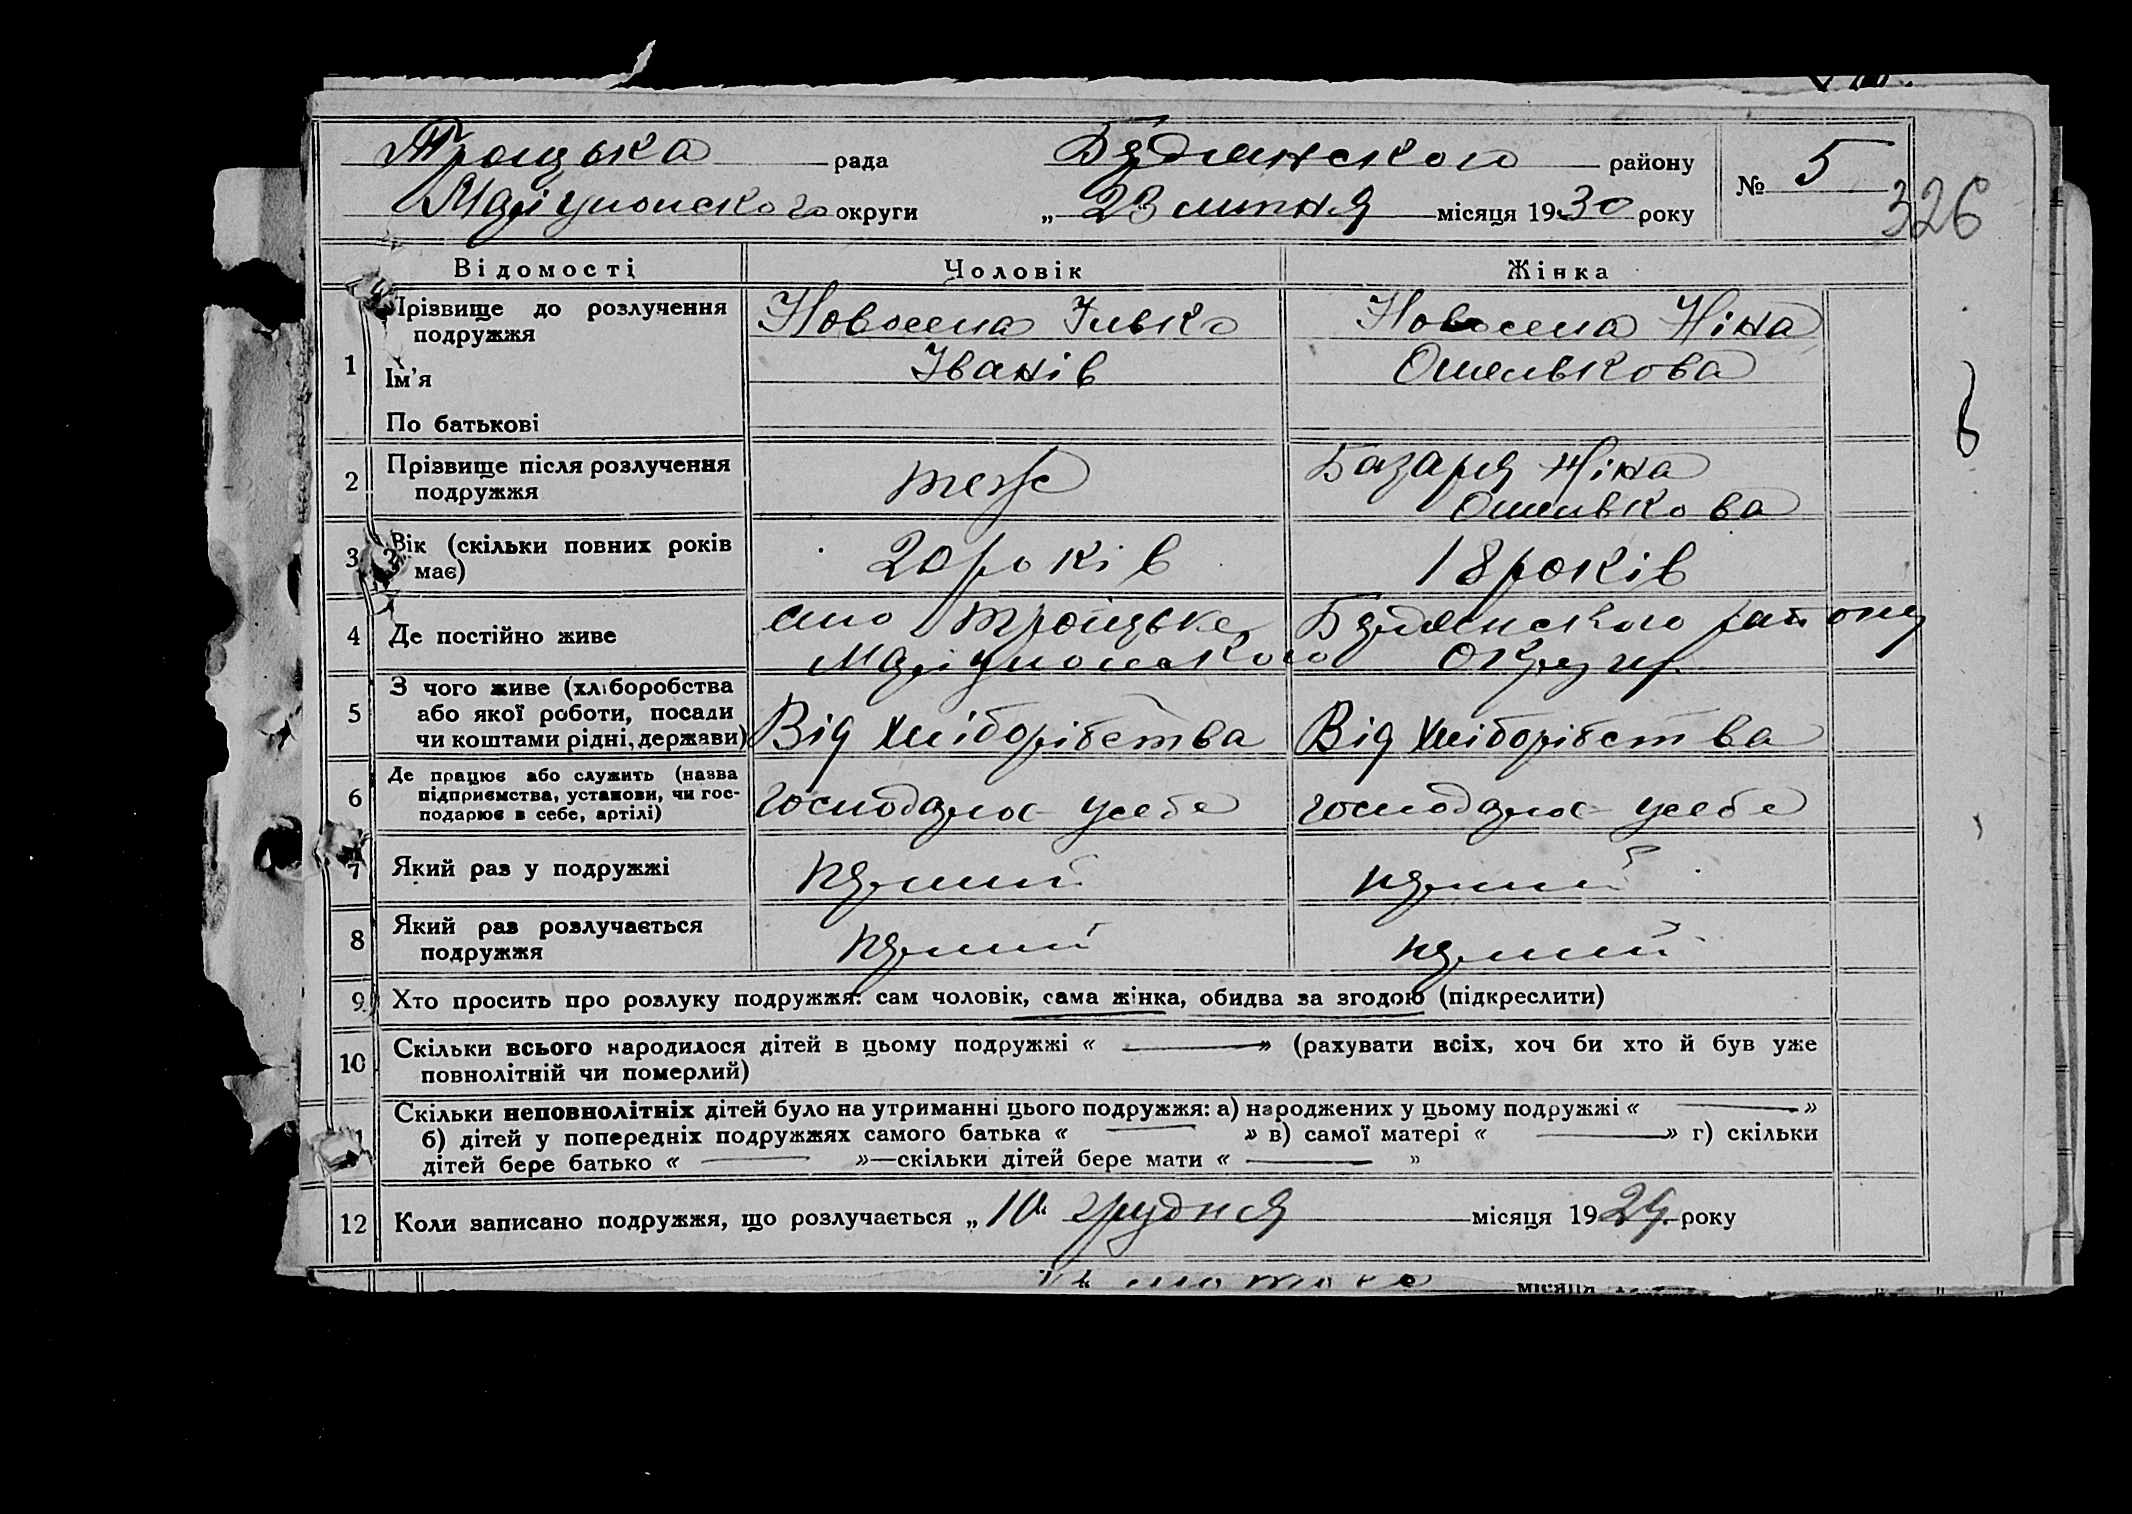 Троцька рада Будянского району № 5
326
Маріупольского округи „ 23 липня місяця 1930 року
Відомості Чоловік Жінка
1 Прізвище до розлучення подружжя Новосела Ілько Новосела Ніна
Ім'я Іванів Омелькова
По батькові
2 Прізвище після розлучення подружжя теж Базаря Ніна
Омелькова
3 Вік (скільки повних років має) 20 років 18 років
4 Де постійно живе село Троїцьке, Будянского району
Маріупольского Округи
5 З чого живе (хліборобства
або якої роботи, посади
чи коштами рідні, держави) Від Хліборібства Від Хліборібства
6 Де працює або служить (назва
підприємства, установи, чи гос-
подарює в себе, артілі) господарює усебе господарює усебе
7 Який раз у подружжі перший перший
8 Який раз розлучається
подружжя перший перший
9 Хто просить про розлуку подружжя: сам чоловік, сама жінка, обидва за згодою (підкреслити)
10 Скільки всього народилося дітей в цьому подружжі « — » (рахувати всіх, хоч би хто й був уже
повнолітній чи померлий)
Скільки неповнолітніх дітей було на утриманні цього подружжя: а) народжених у цьому подружжі « — »
б) дітей у попередніх подружжях самого батька « — » в) самої матері « — » г) скільки
дітей бере батько « — »—скільки дітей бере мати « — »
12 Коли записано подружжя, що розлучається „ 10" грудня місяця 1929 року
місяця